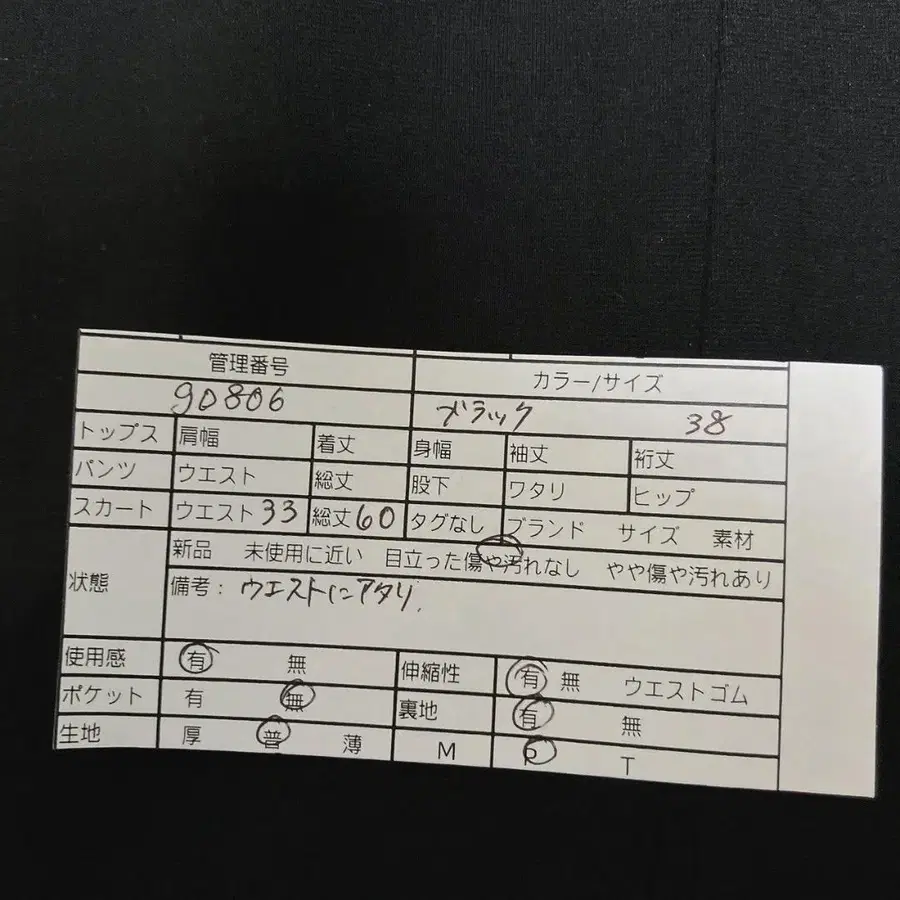 管理番号 カラー/サイズ
90806 ブラック 38
トップス 肩幅 着丈 身幅 袖丈 裄丈
パンツ ウエスト 総丈 股下 ワタリ ヒップ
スカート ウエスト 33 総丈 60 タグなし ブランド サイズ 素材
状態 新品 未使用に近い 目立った傷や汚れなし やや傷や汚れあり
備考: ウエストにアタリ.
使用感 有 無 伸縮性 有 無 ウエストゴム
ポケット 有 無 裏地 有 無
生地 厚 普 薄 M P T